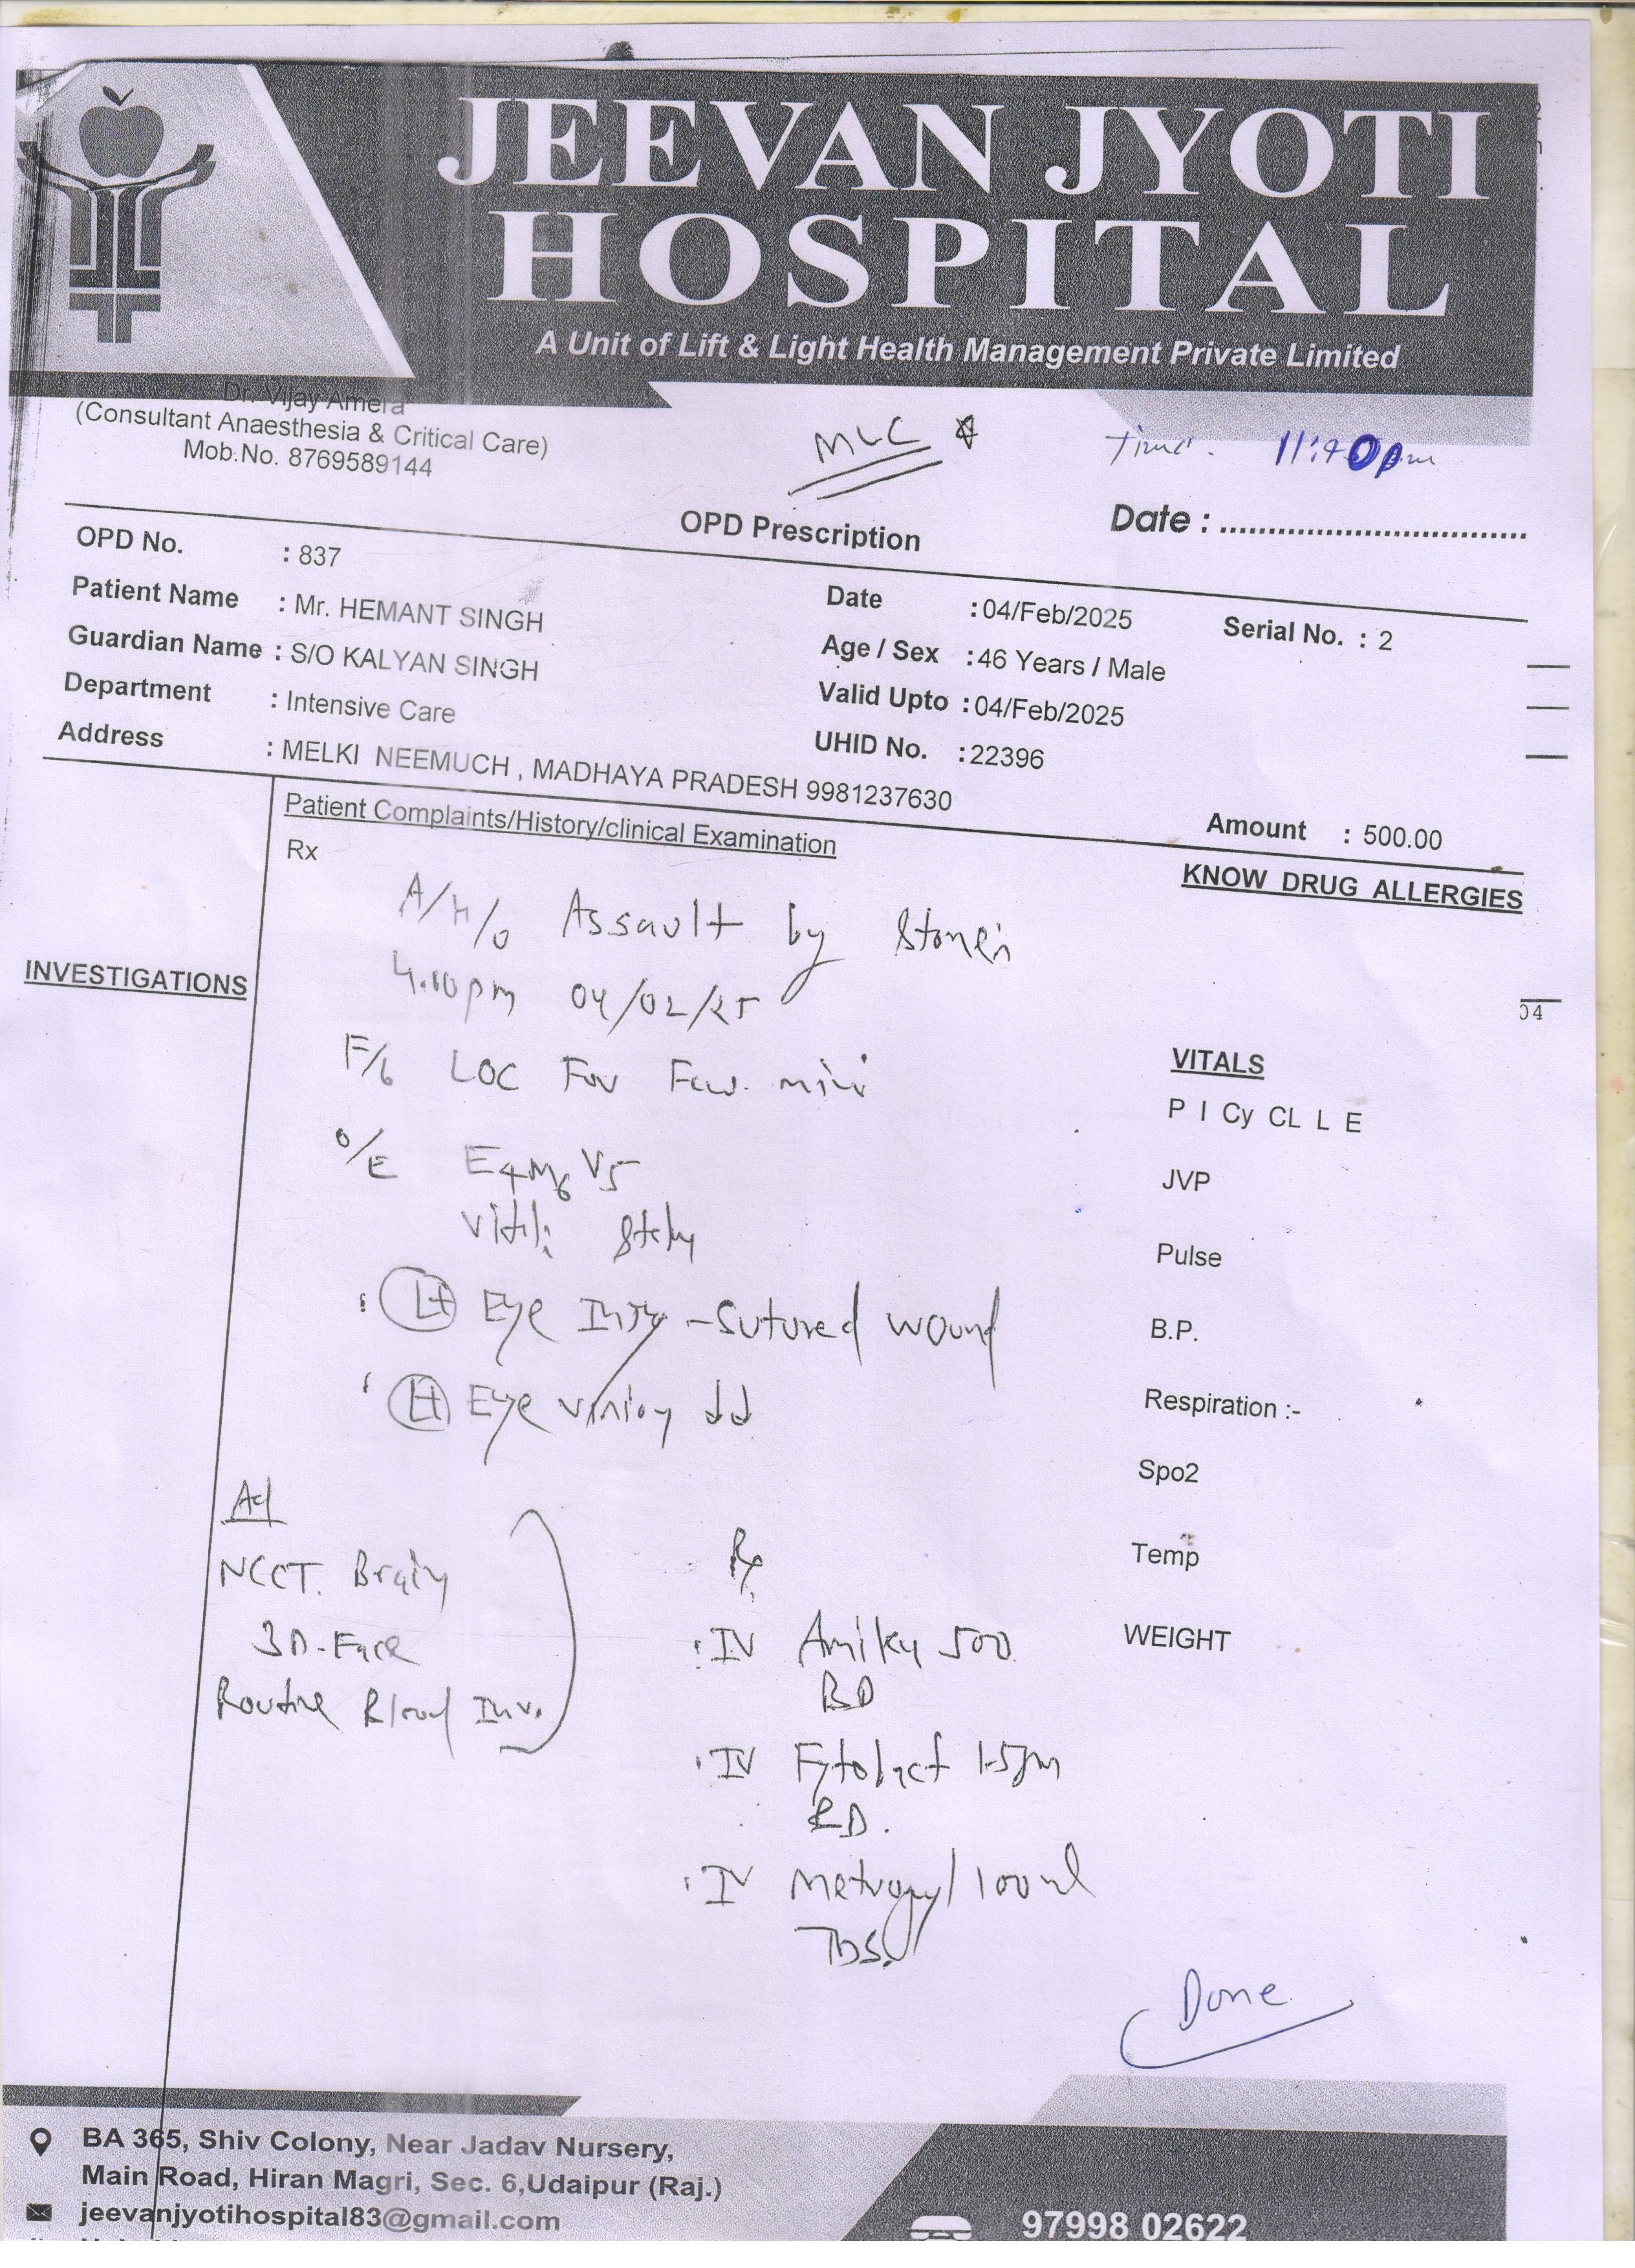 JEEVAN JYOTI
HOSPITAL
A Unit of Lift & Light Health Management Private Limited
Dr. Vijay Amera
(Consultant Anaesthesia & Critical Care)
Mob.No. 8769589144
MLC
Time. 11:40pm
OPD Prescription
Date : ................................
OPD No. : 837
Patient Name : Mr. HEMANT SINGH
Guardian Name : S/O KALYAN SINGH
Department : Intensive Care
Address : MELKI NEEMUCH , MADHAYA PRADESH 9981237630
Date : 04/Feb/2025
Serial No. : 2
Age / Sex : 46 Years / Male
Valid Upto : 04/Feb/2025
UHID No. : 22396
Amount : 500.00
Patient Complaints/History/clinical Examination
Rx
KNOW DRUG ALLERGIES
INVESTIGATIONS
A/H/o Assault by Stones
4.10pm 04/02/25
LOC For Few min
O/E E4M6V5
: Lt Eye Injury - Sutured wound
Lt Eye vision ↓↓
Ad
NCCT. Brain
3D-Face
Routine Blood Inv.
Rx
IV Amika 500
BD
IV 1.5gm
BD.
IV Metrogyl 100ml
TDS.
Done
04
VITALS
P I Cy CL L E
JVP
Pulse
B.P.
Respiration :-
Spo2
Temp
WEIGHT
BA 365, Shiv Colony, Near Jadav Nursery,
Main Road, Hiran Magri, Sec. 6,Udaipur (Raj.)
jeevanjyotihospital83@gmail.com
97998 02622